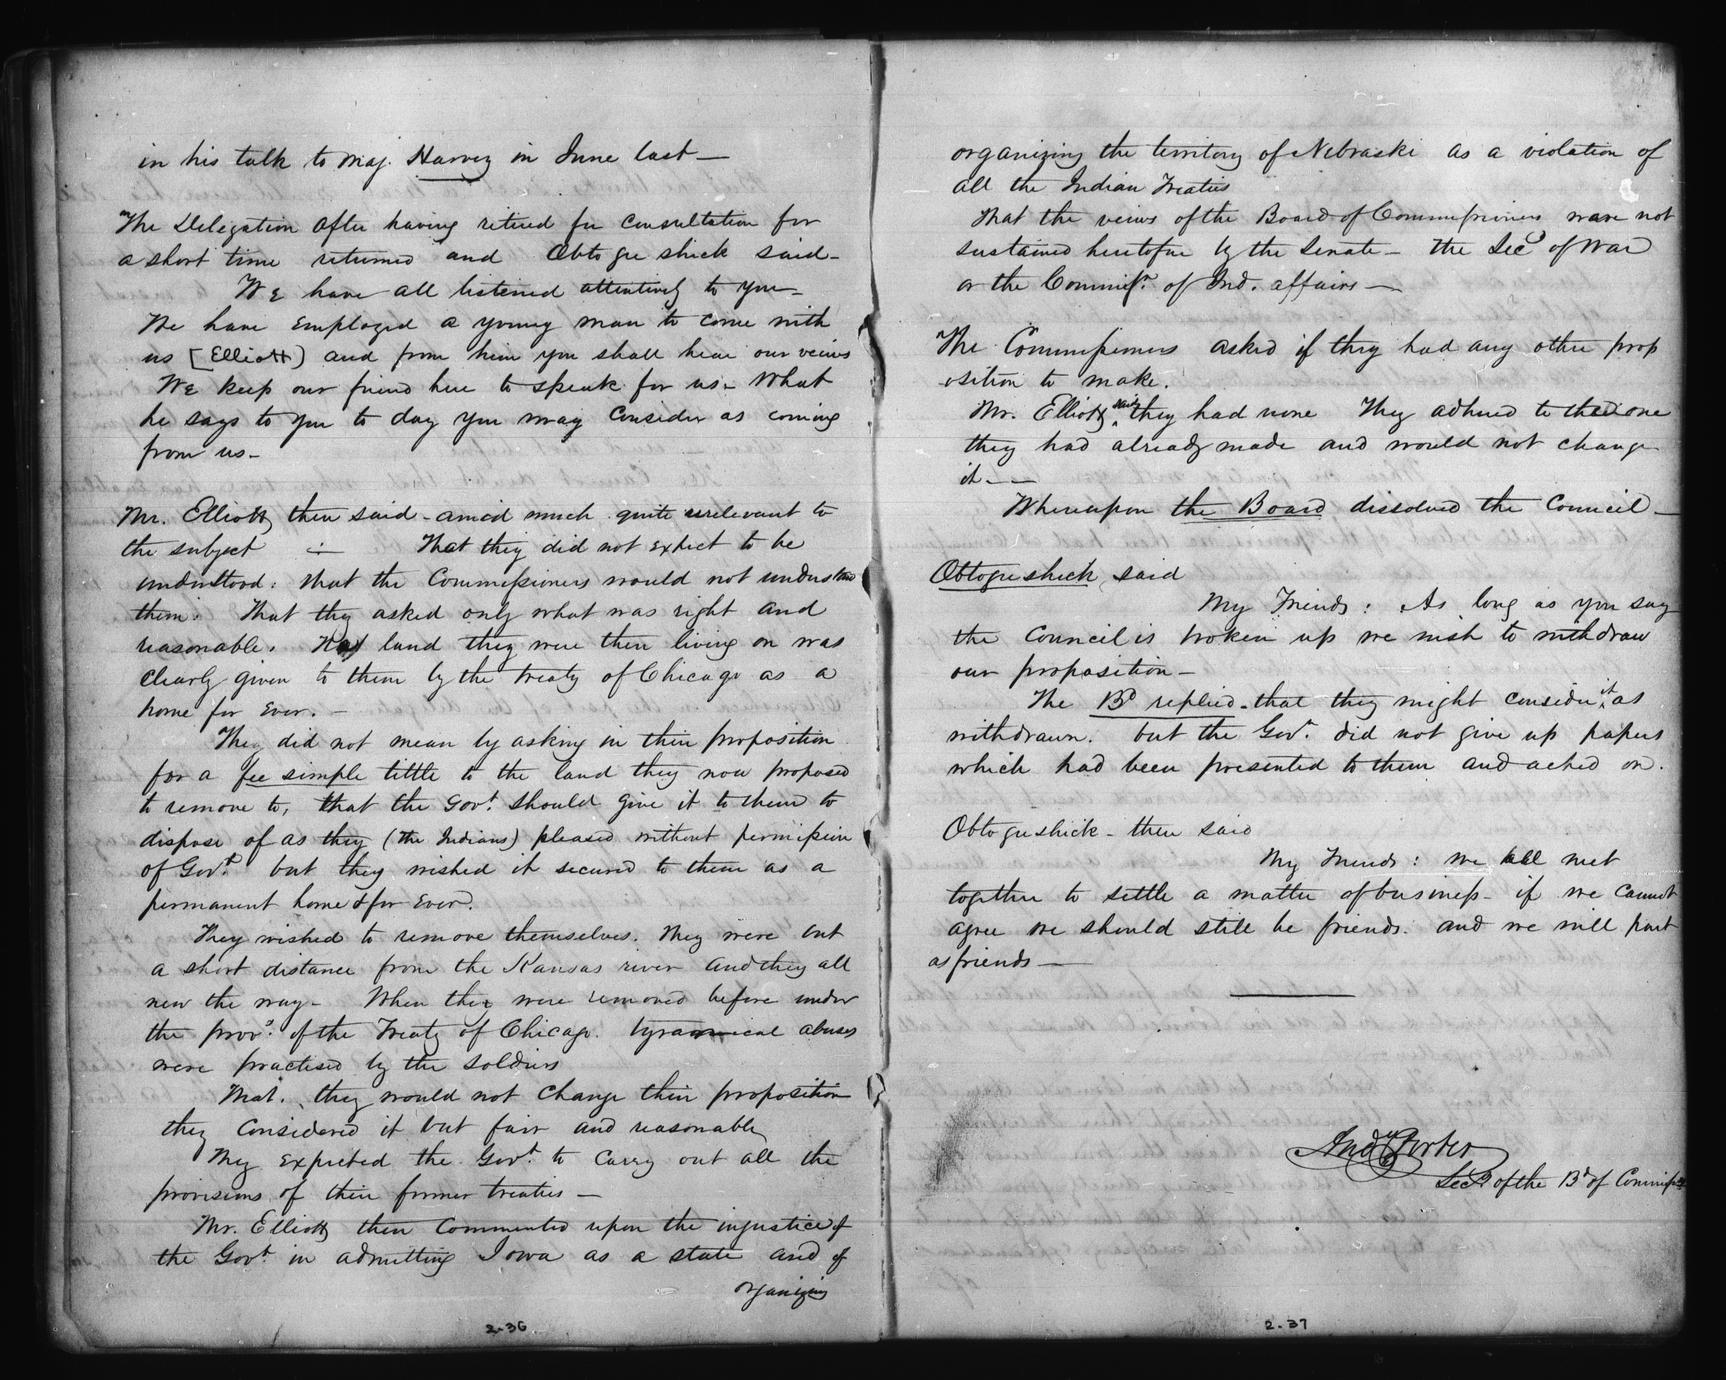 in his talk to Maj. Harvey in June last —
The Delegation after having retired for consultation for
a short time returned and Obtogueshick said —
We have all listened attentively to you —
We have employed a young man to come with
us [Elliott) and from him you shall hear our veiws
We keep our friend here to speak for us — What
he says to you to day you may consider as coming
from us —
Mr. Elliott then said — amid much quite irrelevant to
the subject :— That they did not expect to be
understood: that the Commissioners would not understand
them: That they asked only what was right and
reasonable. That land they were then living on was
clearly given to them by the treaty of Chicago as a
home for ever. —
They did not mean by asking in their proposition
for a fee simple tittle to the land they now proposed
to remove to, that the Govt. should give it to them to
dispose of as they (the Indians) pleased without permission
of Govt. but they wished it secured to them as a
permanent home & for ever.
They wished to remove themselves. They were but
a short distance from the Kansas river and they all
new the way — When they were removed before under
the provs. of the Treaty of Chicago. tyrannical abuses
were practised by the soldiers
That. they would not change their proposition
they considered it but fair and reasonable
They expected the Govt. to carry out all the
provisions of their former treaties —
Mr. Elliott then commented upon the injustice of
the Govt. in admitting Iowa as a state and of
organizing
2-36
organizing the territory of Nebraski as a violation of
all the Indian Treaties
That the veiws of the Board of Commissioners were not
sustained heretofore by the Senate — the Secy of War
or the Commissr. of Ind. affairs —
The Commissioners asked if they had any other prop
osition to make.
Mr. Elliott said they had none They adhered to the one
they had already made and would not change
it — —
Whereupon the Board dissolved the Council —
Obtogueshick said
My Friends: As long as you say
the council is broken up we wish to withdraw
our proposition —
The Bd replied — that they might consider it as
withdrawn. but the Govt. did not give up papers
which had been presented to them and acted on.
Obtogueshick — then said
My Friends: we all met
together to settle a matter of business — if we cannot
agree we should still be friends. and we will part
as friends —
Andw Porter
Secy of the Bd of Commissrs
2-37